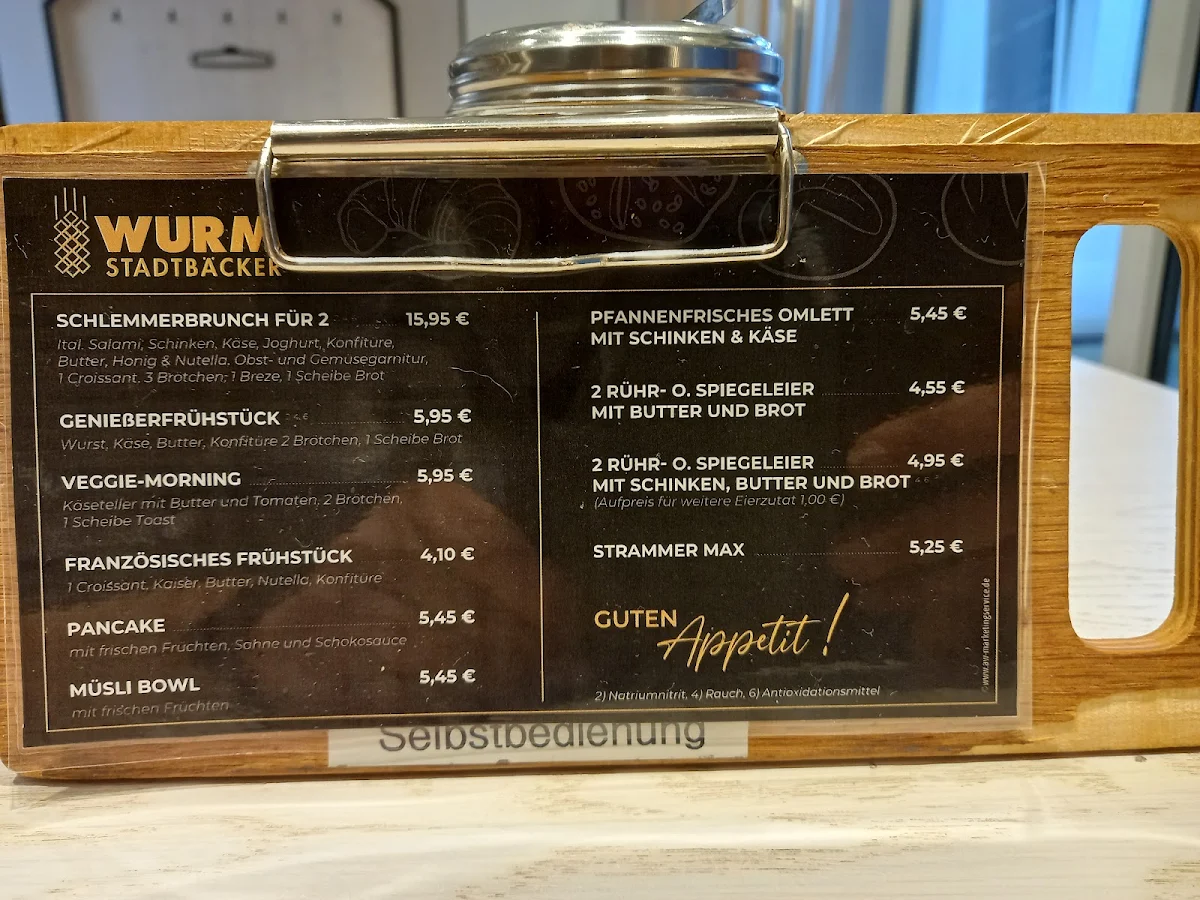 WURM
STADTBÄCKER
SCHLEMMERBRUNCH FÜR 2 15,95 €
Ital. Salami, Schinken, Käse, Joghurt, Konfiture,
Butter, Honig & Nutella. Obst- und Gemüsegarnitur,
1 Croissant, 3 Brötchen, 1 Breze, 1 Scheibe Brot
GENIEẞERFRÜHSTÜCK 5,95 €
Wurst, Käse, Butter, Konfitüre 2 Brötchen, 1 Scheibe Brot
VEGGIE-MORNING 5,95 €
Käseteller mit Butter und Tomaten, 2 Brötchen,
1 Scheibe Toast
FRANZÖSISCHES FRÜHSTÜCK 4,10 €
1 Croissant, Kaiser, Butter, Nutella, Konfitüre
PANCAKE 5,45 €
mit frischen Früchten, Sahne und Schokosauce
MÜSLI BOWL 5,45 €
mit frischen Früchten
PFANNENFRISCHES OMLETT 5,45 €
MIT SCHINKEN & KÄSE
2 RÜHR- O. SPIEGELEIER 4,55 €
MIT BUTTER UND BROT
2 RÜHR- O. SPIEGELEIER 4,95 €
MIT SCHINKEN, BUTTER UND BROT
(Aufpreis für weitere Eierzutat 1,00 €)
STRAMMER MAX 5,25 €
GUTEN
Appetit!
2) Natriumnitrit, 4) Rauch, 6) Antioxidationsmittel
www.aw-marketingservice.de
Selbstbedienung